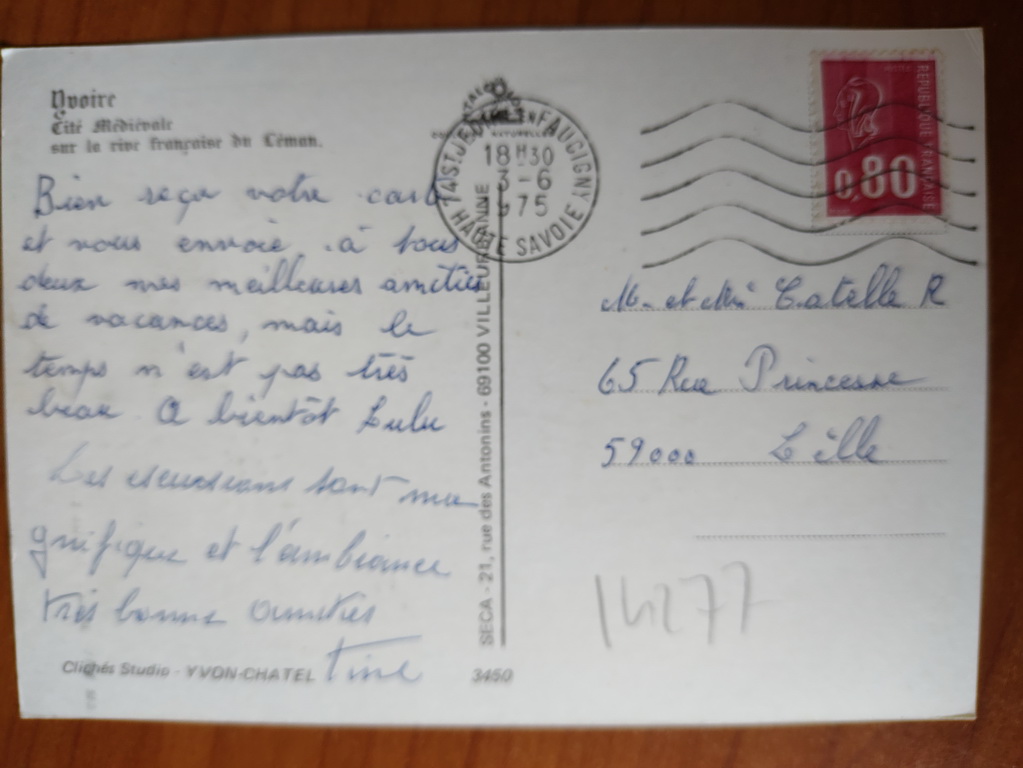 Yvoire
Cité Médiévale
sur la rive française du Léman.
Bien reçu votre carte
et vous envoie à tous
deux mes meilleures amitiés
de vacances, mais le
temps n'est pas très
beau. A bientôt Lulu
Les excursions sont ma
gnifique et l'ambiance
très bonne Amitiés
Tine
Clichés Studio - YVON-CHATEL
3450
SECA - 21, rue des Antonins - 69100 VILLEURBANNE
74 ST JEOIRE EN FAUCIGNY
18H30
3-6
1975
HAUTE SAVOIE
REPUBLIQUE FRANÇAISE
0,80
M. et Me Catelle R
65 Rue Princesse
59000 Lille
14277